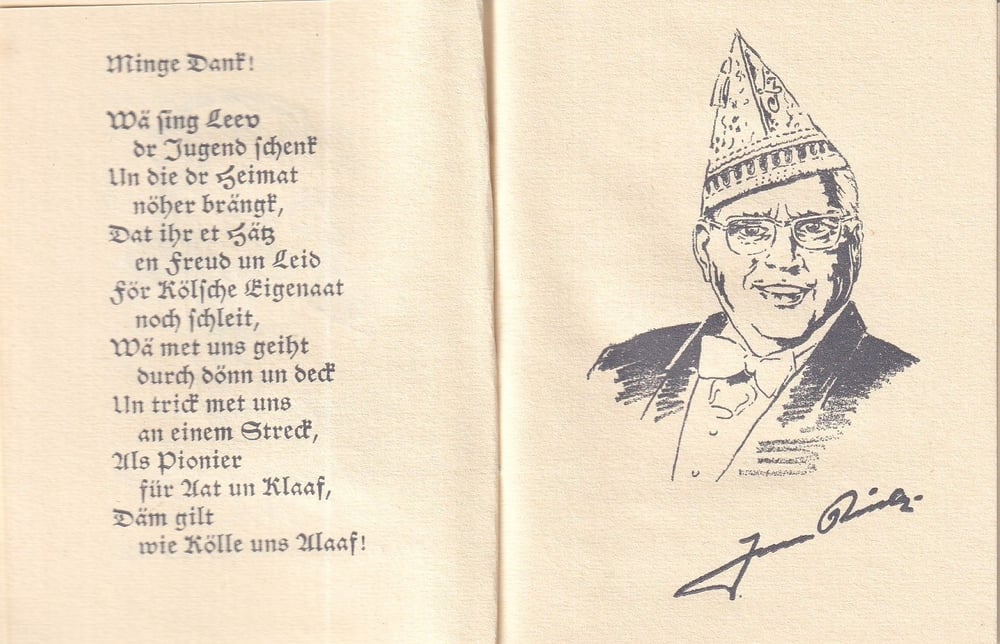 Minge Dank!
Wä sing Leev
dr Jugend schenk
Un die dr Heimat
nöher brängk,
Dat ihr et Hätz
en Freud un Leid
För Kölsche Eigenaat
noch schleit,
Wä met uns geiht
durch dönn un deck
Un trick met uns
an einem Streck,
Als Pionier
för Aat un Klaaf,
Däm gilt
wie Kölle uns Alaaf!